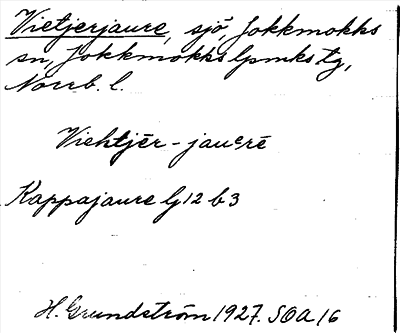 Vietjerjaure, sjö, Jokkmokks
sn, Jokkmokks lpmks tg,
Norrb. l.
Viehtjēr - jauᵉrē
Kappajaure G 12 b 3
H. Grundström 1927. SOA 16